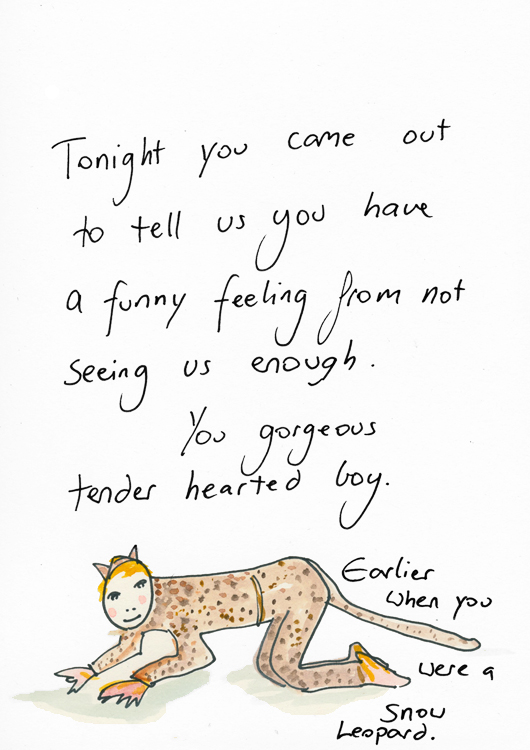 Tonight you came out
to tell us you have
a funny feeling from not
seeing us enough.
You gorgeous
tender hearted boy.
Earlier
when you
were a
Snow
Leopard.